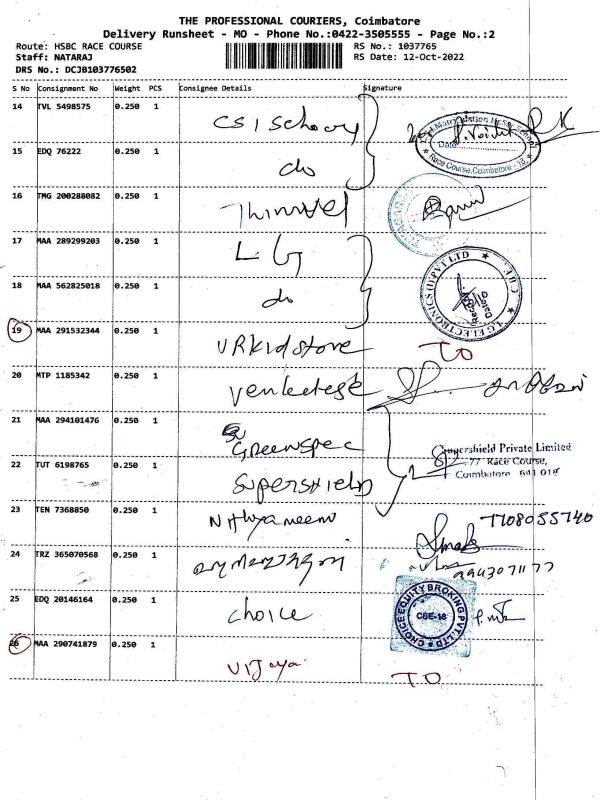 THE PROFESSIONAL COURIERS, Coimbatore
Delivery Runsheet - MO - Phone No.:0422-3505555 - Page No.:2
Route: HSBC RACE COURSE
Staff: NATARAJ
DRS No.: DCJB103776502
RS No.: 1037765
RS Date: 12-Oct-2022
S No Consignment No Weight PCS Consignee Details Signature
14 TVL 5498575 0.250 1 CSI School
15 EDQ 76222 0.250 1 do
Race Course, Coimbatore - 18
16 TMG 200288082 0.250 1
17 MAA 289299203 0.250 1 LG
18 MAA 562825018 0.250 1 do
LG ELECTRONICS (I) PVT LTD
19 MAA 291532344 0.250 1 VRKidstore TO
20 MTP 1185342 0.250 1
21 MAA 294101476 0.250 1 Greenspec
Supershield Private Limited
77 Race Course,
Coimbatore 641 018
22 TUT 6198765 0.250 1 Supershield
23 TEN 7368850 0.250 1
24 TRZ 365070568 0.250 1
25 EDQ 20146164 0.250 1 choice
CHOICE EQUITY BROKING PVT. LTD
CBE-18
26 MAA 290741879 0.250 1 Vijaya TO